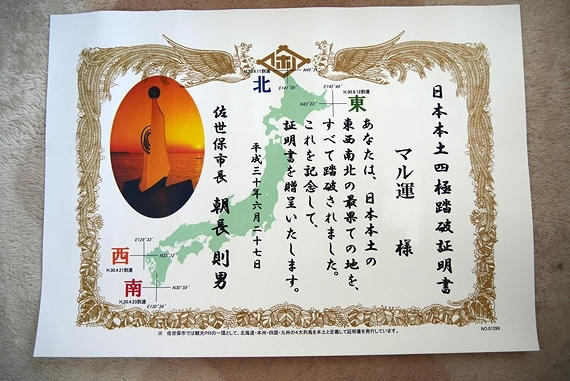 日本本土四極踏破証明書
マル運 様
あなたは、日本本土の
東西南北の最果ての地を、
すべて踏破されました。
これを記念して、
証明書を贈呈いたします。
平成三十年六月二十七日
佐世保市長 朝長 則男
北
N45°31'
E141°56'
東
H.30.6.12到達
E145°49'
N43°23'
西
H.30.4.21到達
E129°33'
N33°12'
南
H.30.4.23到達
N30°59'
E130°39'
※ 佐世保市では観光PRの一環として、北海道・本州・四国・九州の4大列島を本土と定義して証明書を発行しています。
NO.01299